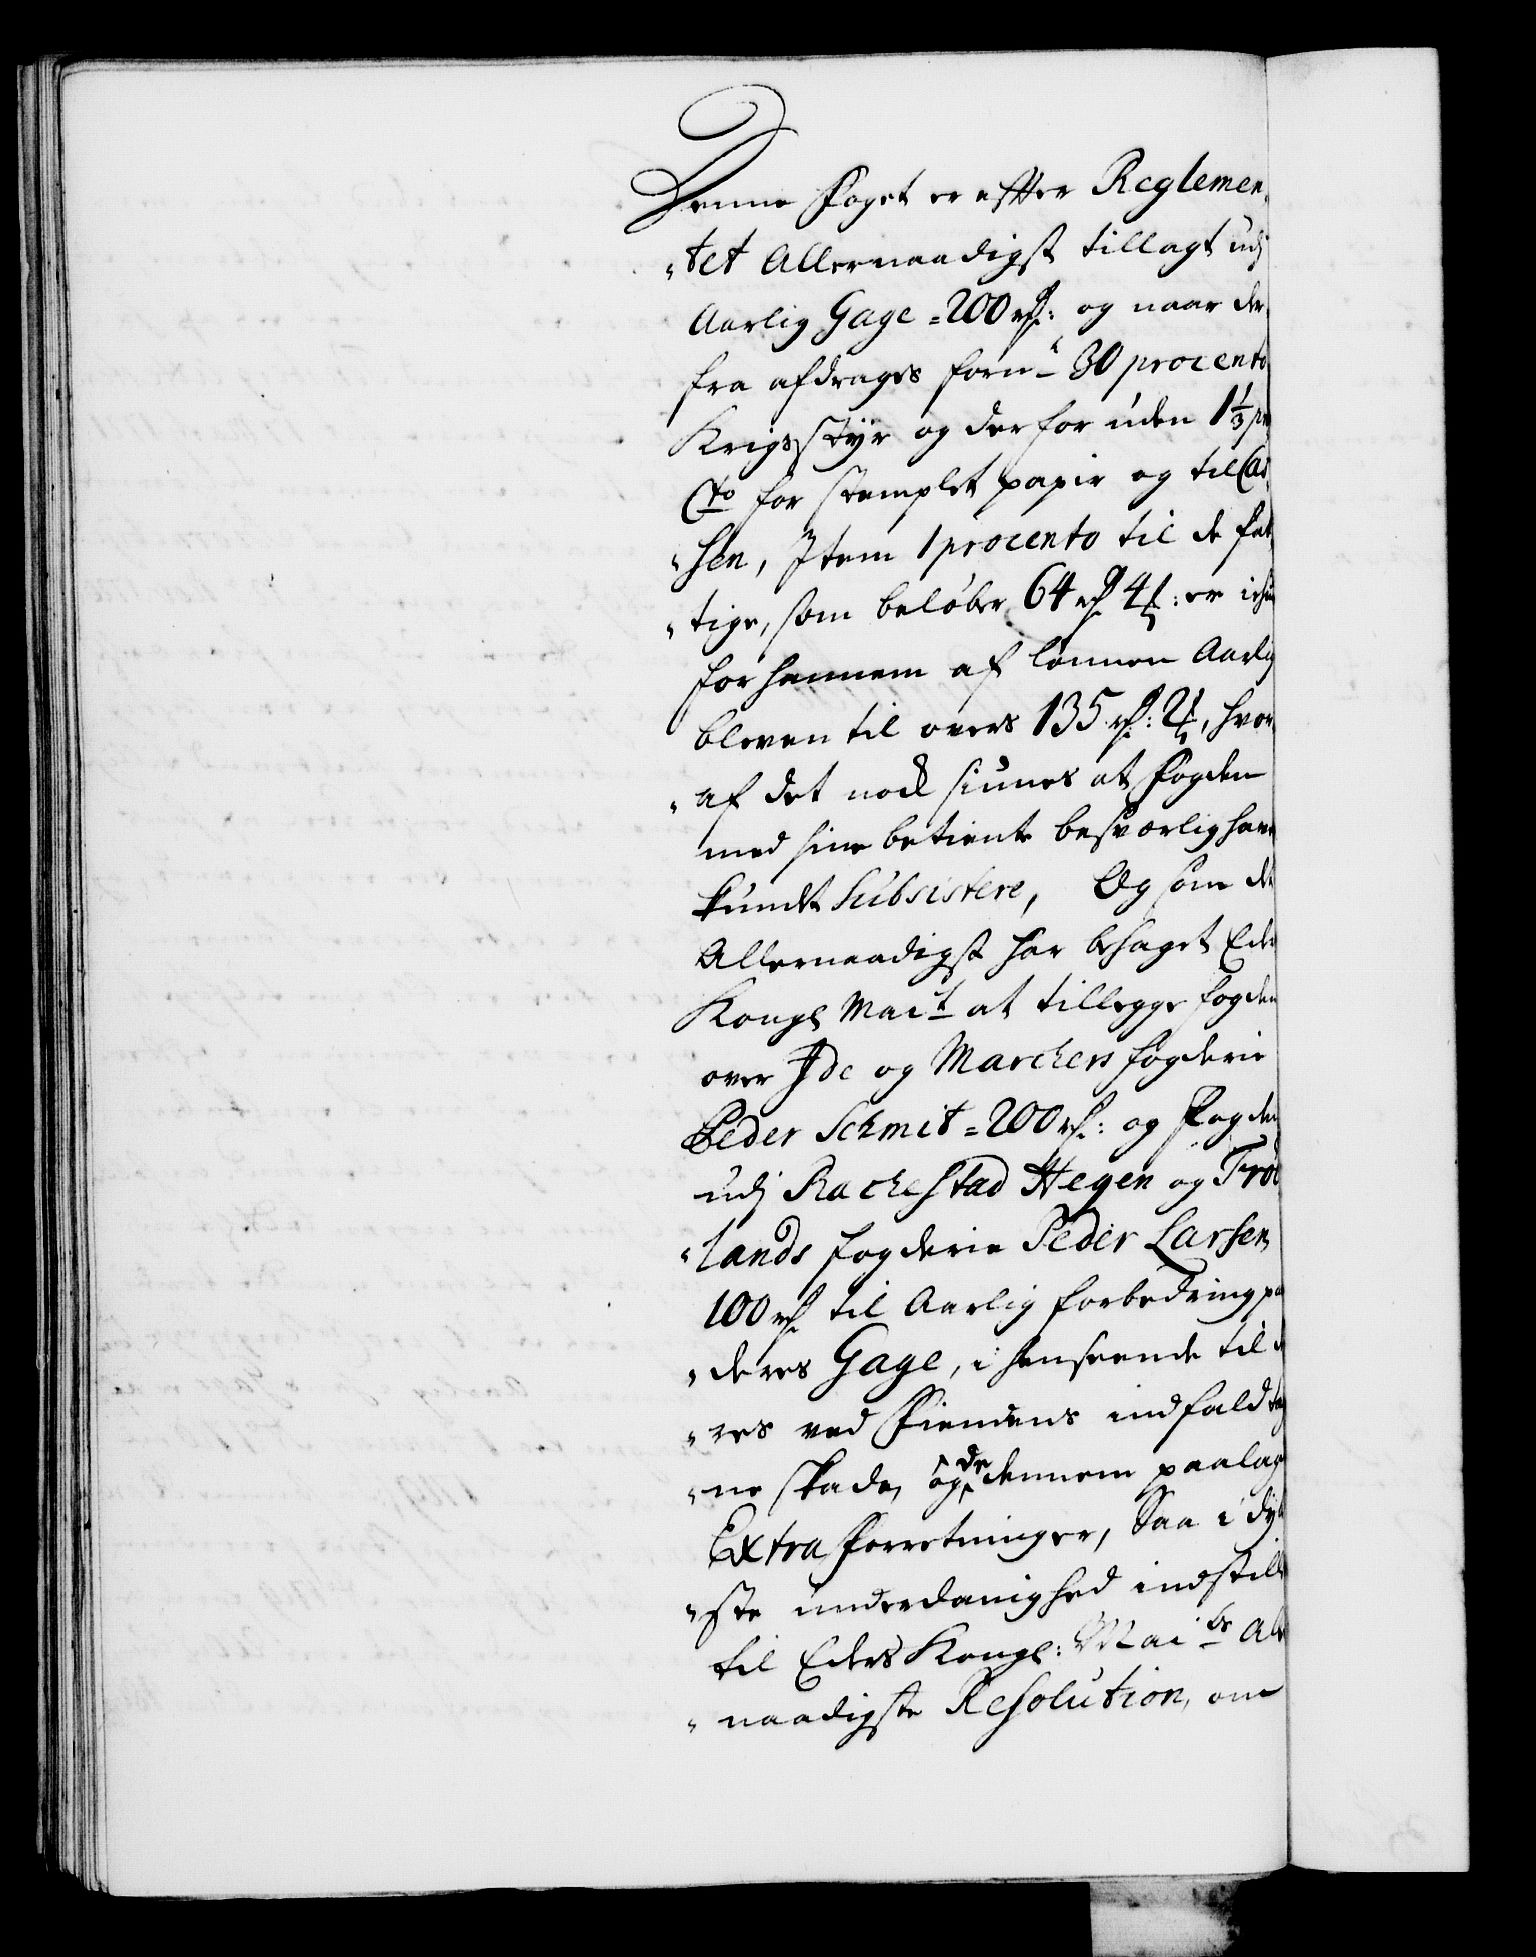 Denne Foget er efter Reglemen,
„tet Allernaadigst tillagt udj
Aarlig Gage =200 rd: og naar der
fra afdrages forn:e 30 procento
Krigsstÿr og der foruden 1⅓ pr
Cto for stemplet papir og til Cas
„sen, Item 1 procento til de fat
„tige, som beløber 64 rd 4 ß: er ichun
for hannem af lønnen Aarlig
bleven til overs 135 rd: 2 ß, hvor
„af det nock siunes at Fogden
med sine betiente besværlig hafr
kundt Subsistere, Og som det
Allernaadigst har behaget Eders
Kongl Mait at tillegge fogden
over Ide og Marchers fogderie
Peder Schmit =200 rd: og Fogden
udj Rachestad Hegen og Frøe
„lands fogderie Peder Larsen
100 rd til Aarlig forbedring paa
„deres Gage, i henseende til de
„res ved Fiendens indfald tag
„ne skade, og de dennem paalagt
Extra Forretninger, Saa i dÿb
„ste underdanighed indstilles
til Eders Kongl: Maits Aller
„naadigste Resolution, om